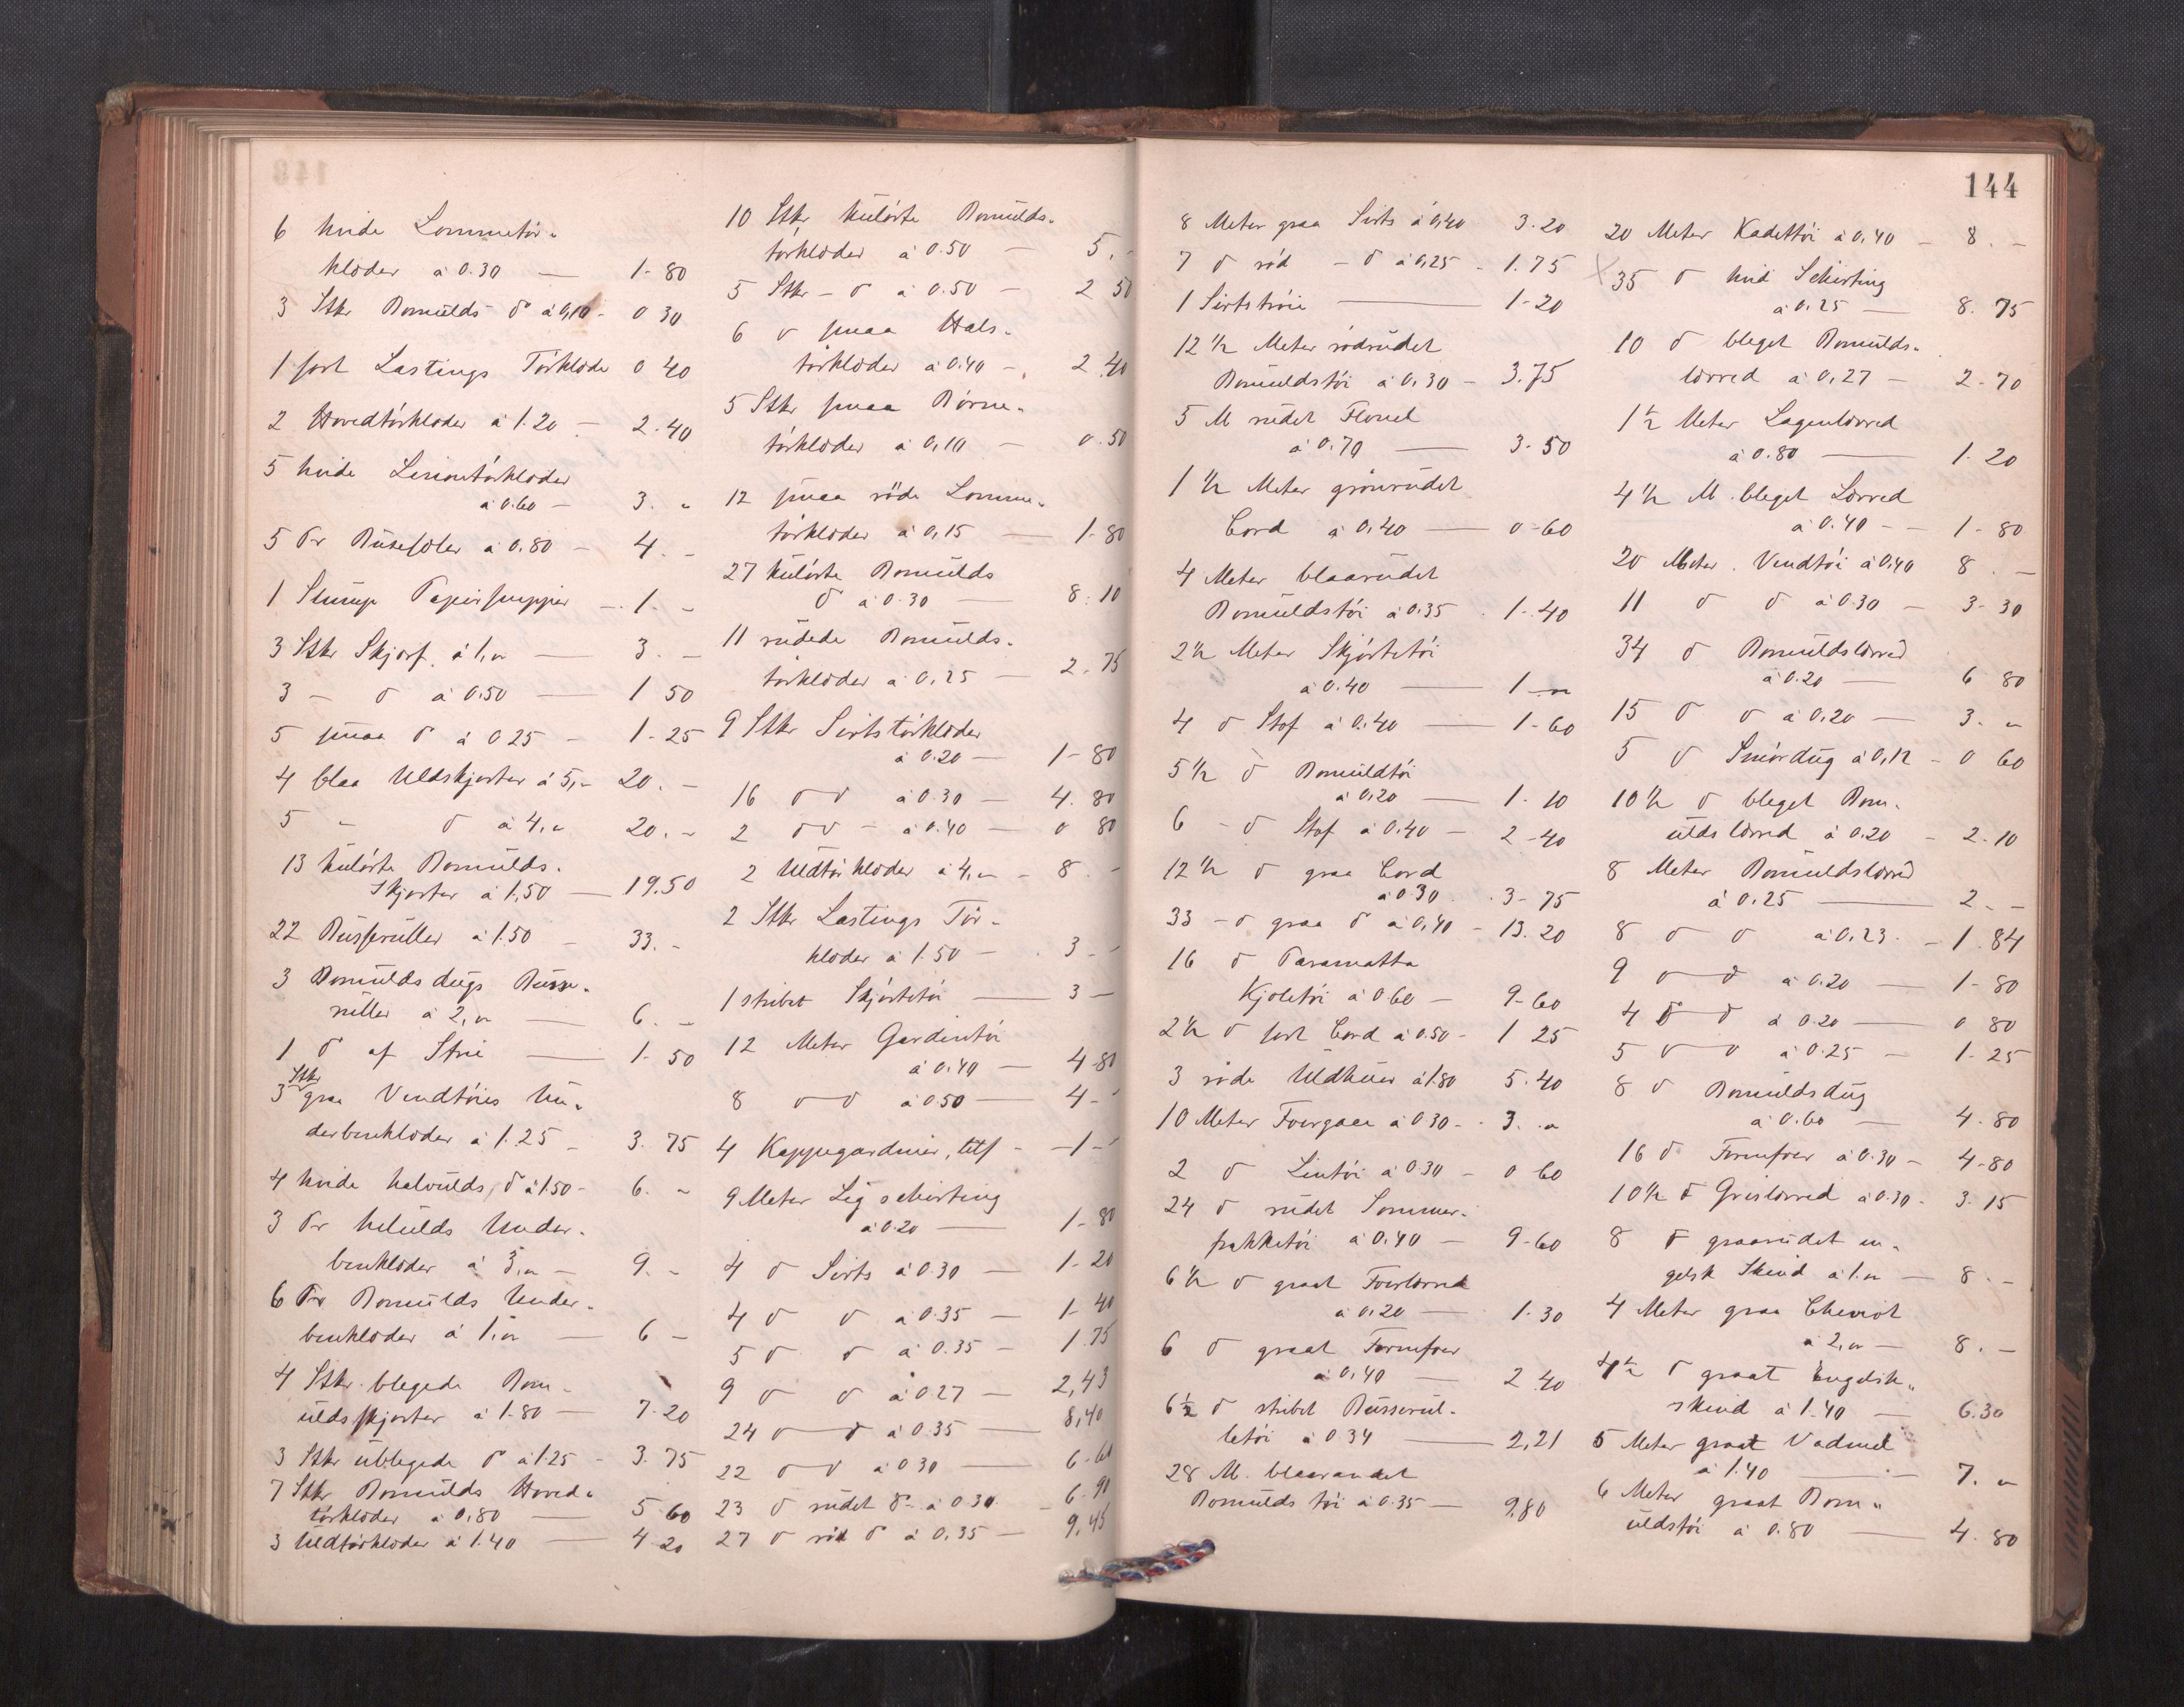 144
6 hvide Lommetør-
klæder à 0.30 — 1-80
3 Stkr Bomulds do à 0,10 - 0 30
1 sort Lastings Tørklæde 0 40
2 Hovedtørklæder à 1.20 — 2.40
5 hvide
à 0.60 — 3. „
5 Pr Buxesæler à 0.80 — 4. -
1 Slump Papirsnipper — 1. -
3 Stkr Skjærf à 1,„ — 3. —
3 — do à 0.50 — 1 50
5 smaa do à 0 25 - 1-25
4 blaa Uldskjorter à 5,- 20. —
5 „ do à 4,„ 20. „
13 kulørte Bomulds-
Skjorter à 1,50 — 19.50
22 Busseruller à 1.50 — 33. -
3 Bomuldsdugs Busse-
ruller à 2,„ — 6. —
1 do af Strie — 1- 50
3 Stkr graa Vendtøies Un-
derbenklæder à 1.25 - 3. 75
4 hvide halvulds do à 1.50 - 6. „
3 Pr helulds Under-
benklæder à 3,„ — 9. -
6 Pr Bomulds Under-
benklæder à 1,„ — 6 -
4 Stkr. blegede Bom-
uldsskjorter à 1-80 — 7-20
3 Stkr ublegede do à 1.25 - 3.75
7 Stkr Bomulds Hoved-
tørklæder à 0,80 — 5 60
3 Uldtørklæder à 1.40 — 4 20
10 Stkr kulørte Bomulds-
tørklæder à 0.50 — 5. -
5 Stkr - do à 0.50 — 2 50
6 do smaa Hals-
tørklæder à 0.40 - 2.40
5 Stkr smaa Børne-
tørklæder à 0,10 — 0.50
12 smaa røde Lomme-
tørklæder à 0,15 — 1-80
27 kulørte Bomulds
do à 0.30 — 8.10
11 rudede Bomulds-
tørklæder à 0,25 — 2.75
9 Stkr Sirtstørklæder
à 0.20 — 1-80
16 do do à 0.30 — 4.80
2 do do - à 0.40 — 0 80
2 Uldtørklæder à 4,„ - 8. -
2 Stkr Lastings Tør-
klæder à 1.50 — 3 -
1 stribet Skjørtetøi — 3 —
12 Meter Gardintøi
à 0.40 — 4-80
8 do do à 0.50 — 4 -
4 Kappegardiner, — 1 -
9 Meter Ligschirting
à 0.20 — 1-80
4 do Sirts à 0.30 — 1-20
4 do do à 0.35 — 1-40
5 do do à 0.35 — 1.75
9 do do à 0.27 — 2,43
24 do do à 0.35 — 8,40
22 do do à 0 30 — 6-60
23 do rudet do à 0.30 — 6-90
27 do rød do à 0,35 — 9,45
8 Meter graa Sirts à 0,40 3.20
7 do rød - do à 0,25 - 1.75
1 Sirtstrøie — 1-20
12 ½ Meter rødrudet
Bomuldstøi à 0,30 — 3.75
5 M rudet Flonel
à 0.70 — 3-50
1 ½ Meter grønrudet
Cord à 0,40 — 0-60
4 Meter blaarudet
Bomuldstøi à 0.35 . 1-40
2 ½ Meter Skjørtetøi
à 0.40 — 1 - „
4 do Stof à 0.40 — 1-60
5 ½ do Bomuldtøi
à 0,20 — 1-10
6 - do Stof à 0.40 — 2-40
12 ½ do graa Cord
à 0.30 . 3-75
33 - do graa do à 0,40 - 13.20
16 do Paramatta
Kjoletøi à 0 60 — 9-60
2 ½ do sort Cord à 0.50 - 1 25
3 røde Uldhuer à 1.80 5.40
10 Meter Foergaze à 0 30 - 3. „
2 do Lintøi à 0.30 - 0 60
24 do rudet Sommer-
frakketøi à 0.40 — 9-60
6 ½ do graat Foerlærred
à 0,20 — 1-30
6 do graat Formfoer
à 0,40 — 2 40
6 ½ do stribet Busserul-
letøi à 0 34 — 2,21
28 M. blaarandet
Bomulds tøi à 0.35 — 9,80
20 Meter Kadettøi à 0,40 - 8. -
35 do hvid Schirting
à 0,25 — 8.75
10 do bleget Bomulds-
lærred à 0,27 — 2-70
1 ½ Meter Lagenlærred
à 0.80 — 1-20
4 ½ M. bleget Lærred
à 0.40 - — 1-80
20 Meter Vendtøi à 0,40 8. —
11 do do à 0.30 — 3-30
34 do Bomuldslærred
à 0.20 — 6 80
15 do do à 0,20 — 3. „
5 do Smørdug à 0,12 - 0 60
10 ½ do bleget Bom-
uldslærred à 0,20 - 2-10
8 Meter Bomuldslærred
à 0.25 — 2 - -
8 do do à 0,23. - 1.84
9 do do à 0.20 — 1-80
4 do do à 0.20 — 0 80
5 do do à 0.25 — 1-25
8 do Bomuldsdug
à 0.60 — 4-80
16 do Formfoer à 0.30 - 4-80
10 ½ do Grislærred à 0.30 - 3.15
8 do graarudet en-
gelsk Skind à 1,„ — 8. -
4 Meter graa Cheviot
à 2,„ — 8. —
4 ½ do graat Engelsk-
skind à 1.40 — 6.30
5 Meter graat Vadmel
à 1.40 — 7. „
6 Meter graat Bom-
uldstøi à 0.80 — 4.80